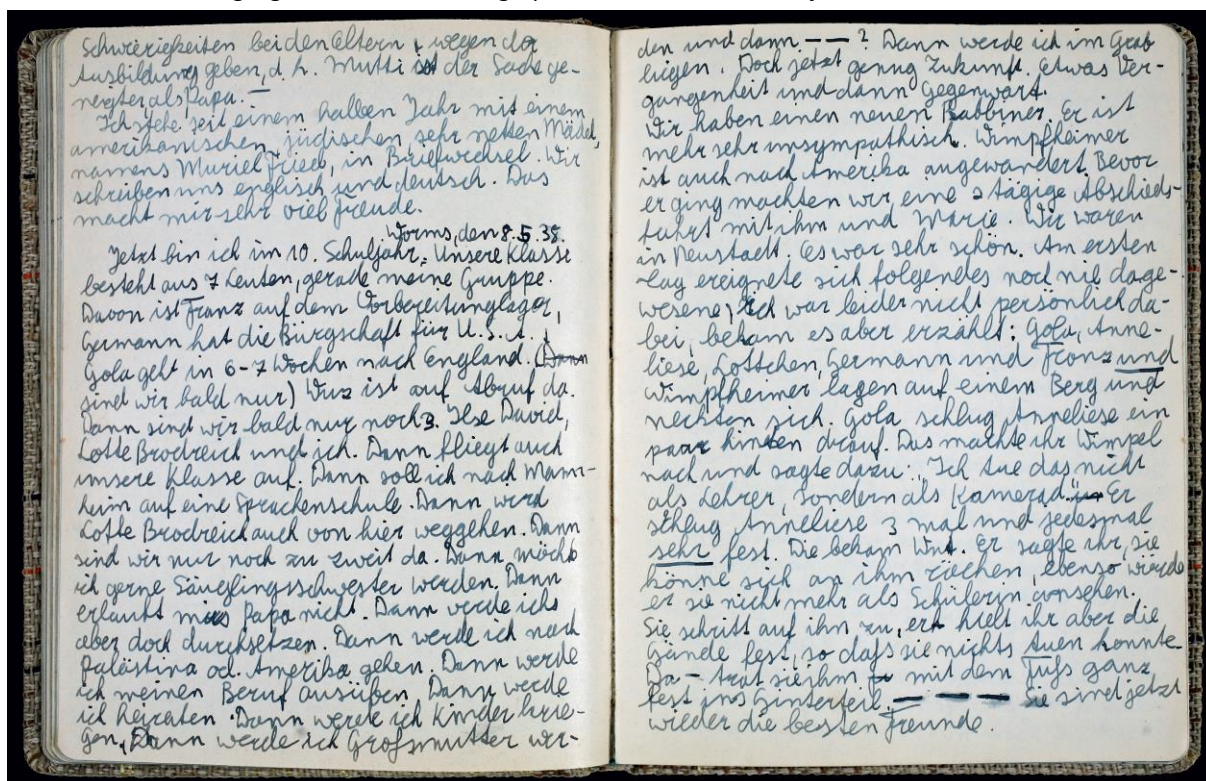 Schwierigkeiten bei den Eltern wegen der
Ausbildung geben, d. h. Mutti ist der Sache ge-
neigter als Papa. —
Ich stehe seit einem halben Jahr mit einem
amerikanischen, jüdischen, sehr netten Mädel,
namens Muriel Fried, in Briefwechsel. Wir
schreiben uns englisch und deutsch. Das
macht mir sehr viel Freude.
Worms, den 8.5.38.
Jetzt bin ich im 10. Schuljahr. Unsere Klasse
besteht aus 7 Leuten, gerade meine Gruppe.
Davon ist Franz auf dem Vorbereitunglager,
Germann hat die Bürgschaft für U.S.A.,
Gola geht in 6-7 Wochen nach England. (Dann
sind wir bald nur) Wuz ist auf Abruf da.
Dann sind wir bald nur noch 3. Ilse David,
Lotte Brodreich und ich. Dann fliegt auch
unsere Klasse auf. Dann soll ich nach Mann-
heim auf eine Sprachenschule. Dann wird
Lotte Brodreich auch von hier weggehen. Dann
sind wir nur noch zu zweit da. Dann möcht
ich gerne Säuglingsschwester werden. Dann
erlaubt mirs Papa nicht. Dann werde ichs
aber doch durchsetzen. Dann werde ich nach
Palästina od. Amerika gehen. Dann werde
ich meinen Beruf ausüben, Dann werde
ich heiraten. Dann werde ich Kinder krie-
gen, Dann werde ich Großmutter wer-
den und dann — — ? Dann werde ich im Grab
liegen. Doch jetzt genug Zukunft. Etwas Ver-
gangenheit und dann Gegenwart.
Wir haben einen neuen Rabbiner. Er ist
mehr sehr unsympathisch. Wimpfheimer
ist auch nach Amerika ausgewandert. Bevor
er ging machten wir, eine 2 tägige Abschieds-
fahrt mit ihm und Marie. Wir waren
in Neustadt. Es war sehr schön. Am ersten
Tag ereignete sich folgendes noch nie dage-
wesene, Ich war leider nicht persönlich da-
bei, bekam es aber erzählt: Gola, Anne-
liese, Lottchen, Germann und Franz und
Wimpfheimer lagen auf einem Berg und
neckten sich. Gola schlug Anneliese ein
paar hinten drauf. Das machte ihr Wimpel
nach und sagte dazu: "Ich tue das nicht
als Lehrer, sondern als Kamerad." Er
schlug Anneliese 3 mal und jedesmal
sehr fest. Die bekam Wut. Er sagte ihr, sie
könne sich an ihm rächen, ebenso würde
er sie nicht mehr als Schülerin ansehen.
Sie schritt auf ihn zu, er hielt ihr aber die
Hände fest, so daß sie nichts tuen konnte.
Da - trat sie ihm mit dem Fuß ganz
fest ins Hinterteil. — — — — Sie sind jetzt
wieder die besten Freunde.